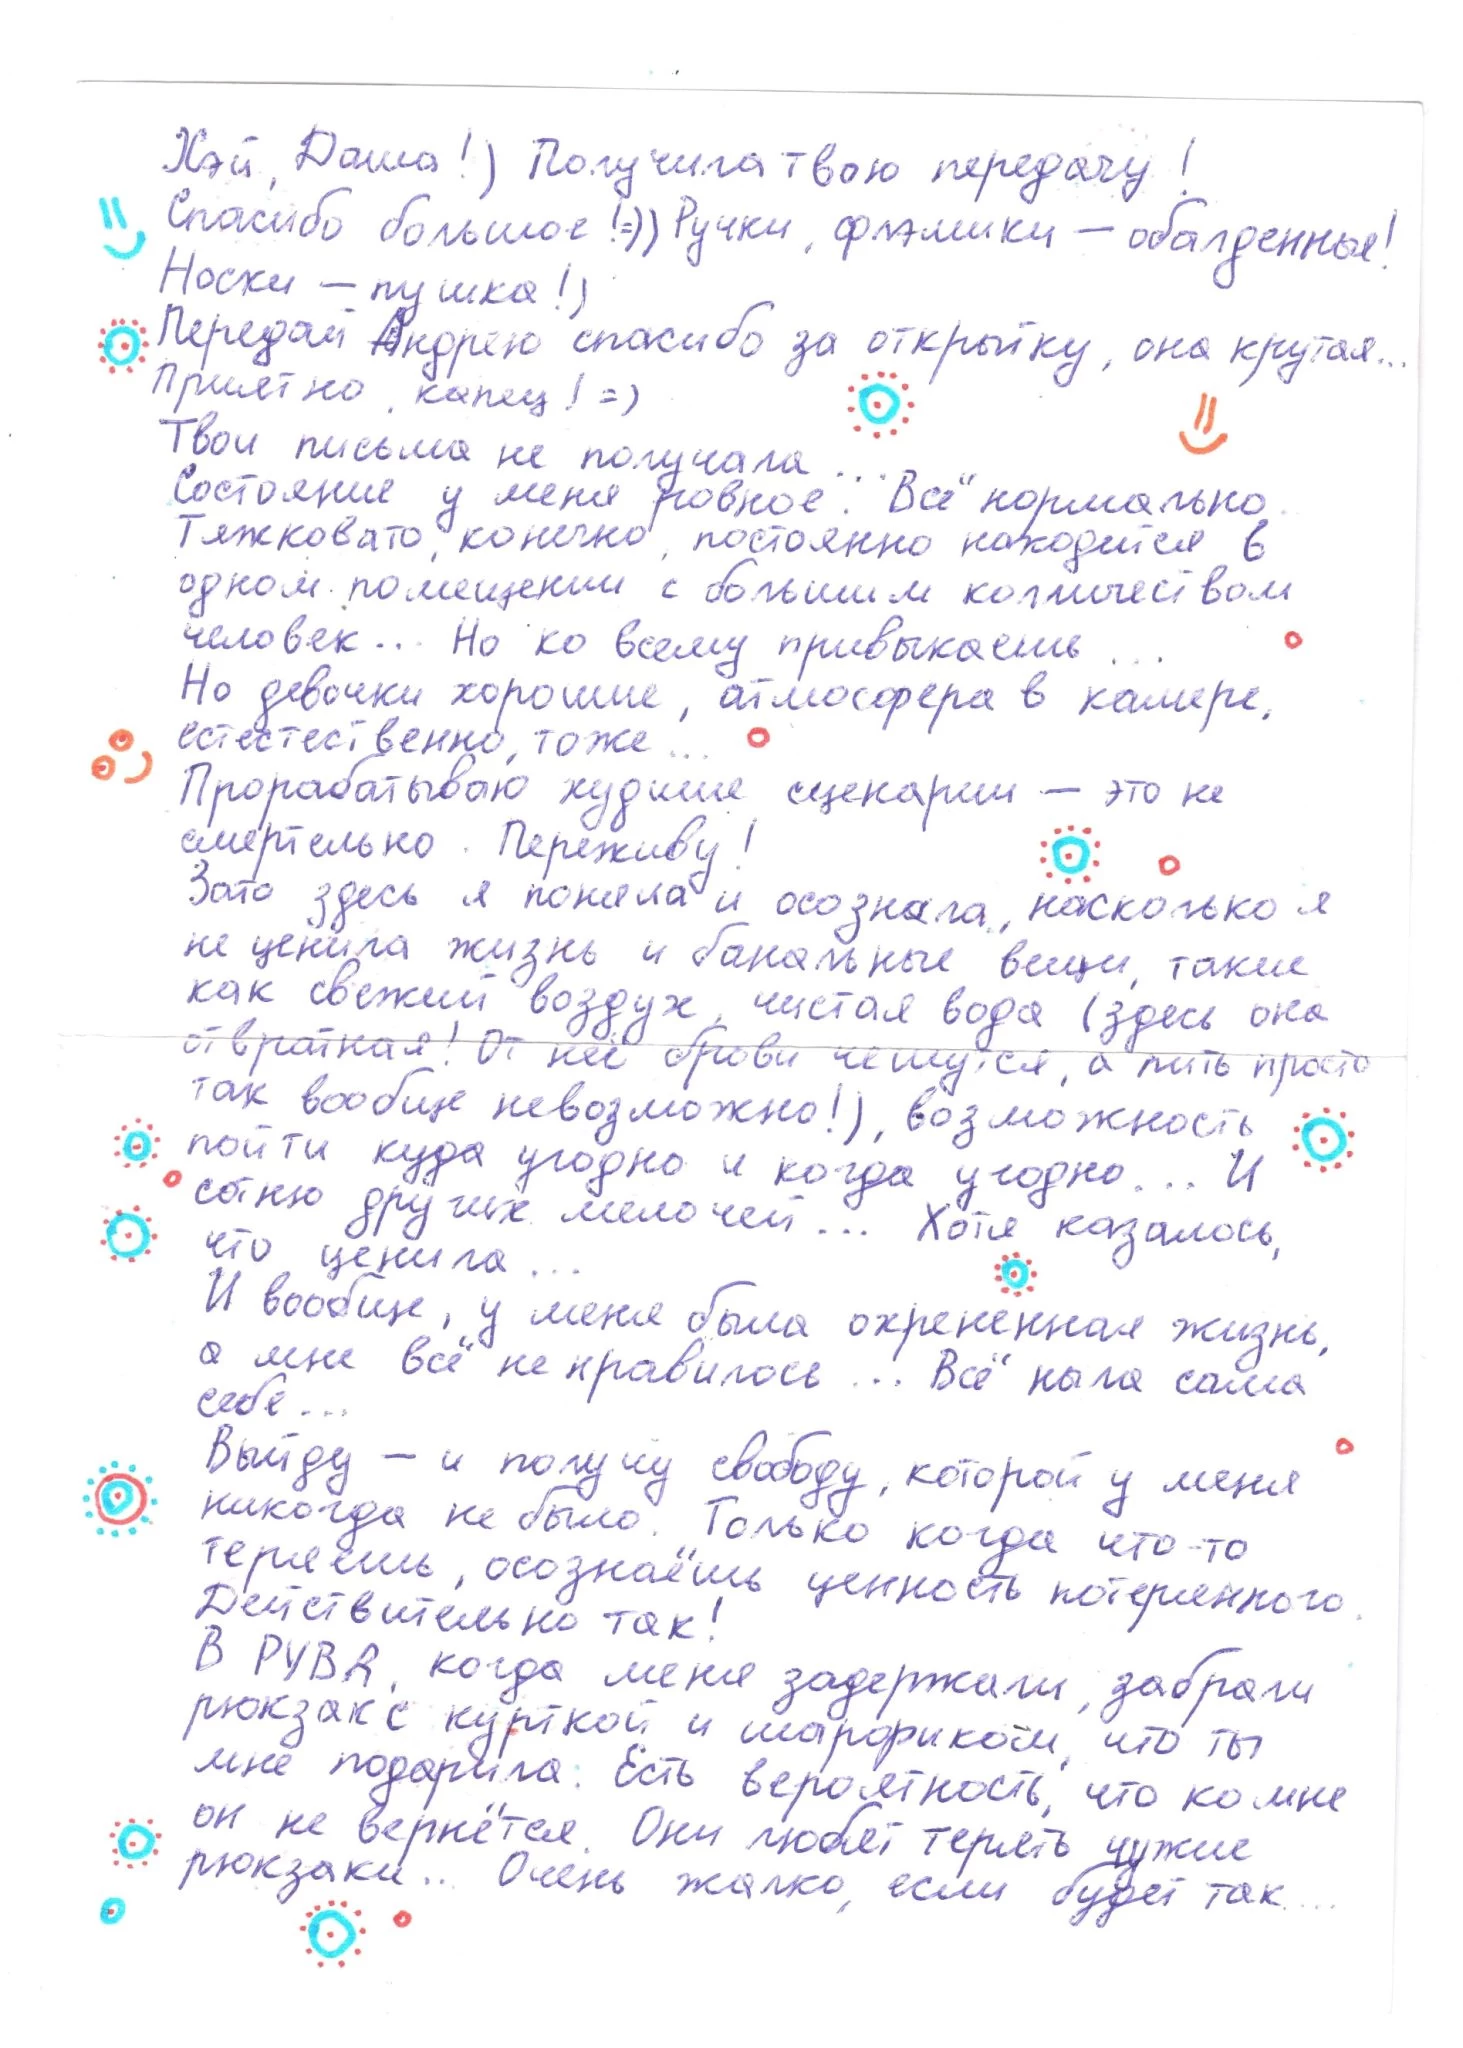 Хэй, Даша!) Получила твою передачу!
Спасибо большое!=)) Ручки, флэмики — обалденные!
Носки — пушка!)
Передай Андрею спасибо за открытку, она крутая...
Приятно, капец! =)
Твои письма не получала...
Состояние у меня ровное. Всё нормально.
Тяжковато, конечно, постоянно находится в
одном помещении с большим количеством
человек... Но ко всему привыкаешь...
Но девочки хорошие, атмосфера в камере,
естественно, тоже...
Прорабатываю худшие сценарии — это не
смертельно. Переживу!
Зато здесь я поняла и осознала, насколько я
не ценила жизнь и банальные вещи, такие
как свежий воздух, чистая вода (здесь она
отвратная! От неё брови чешутся, а пить просто
так вообще невозможно!), возможность
пойти куда угодно и когда угодно... И
сотню других мелочей... Хотя казалось,
что ценила...
И вообще, у меня была охрененная жизнь,
а мне всё не нравилось... Всё ныла сама
себе...
Выйду — и получу свободу, которой у меня
никогда не было. Только когда что-то
теряешь, осознаёшь ценность потерянного.
Действительно так!
В РУВД, когда меня задержали, забрали
рюкзак с курткой и шарфиком, что ты
мне подарила. Есть вероятность, что ко мне
он не вернётся. Они любят терять чужие
рюкзаки... Очень жалко, если будет так...